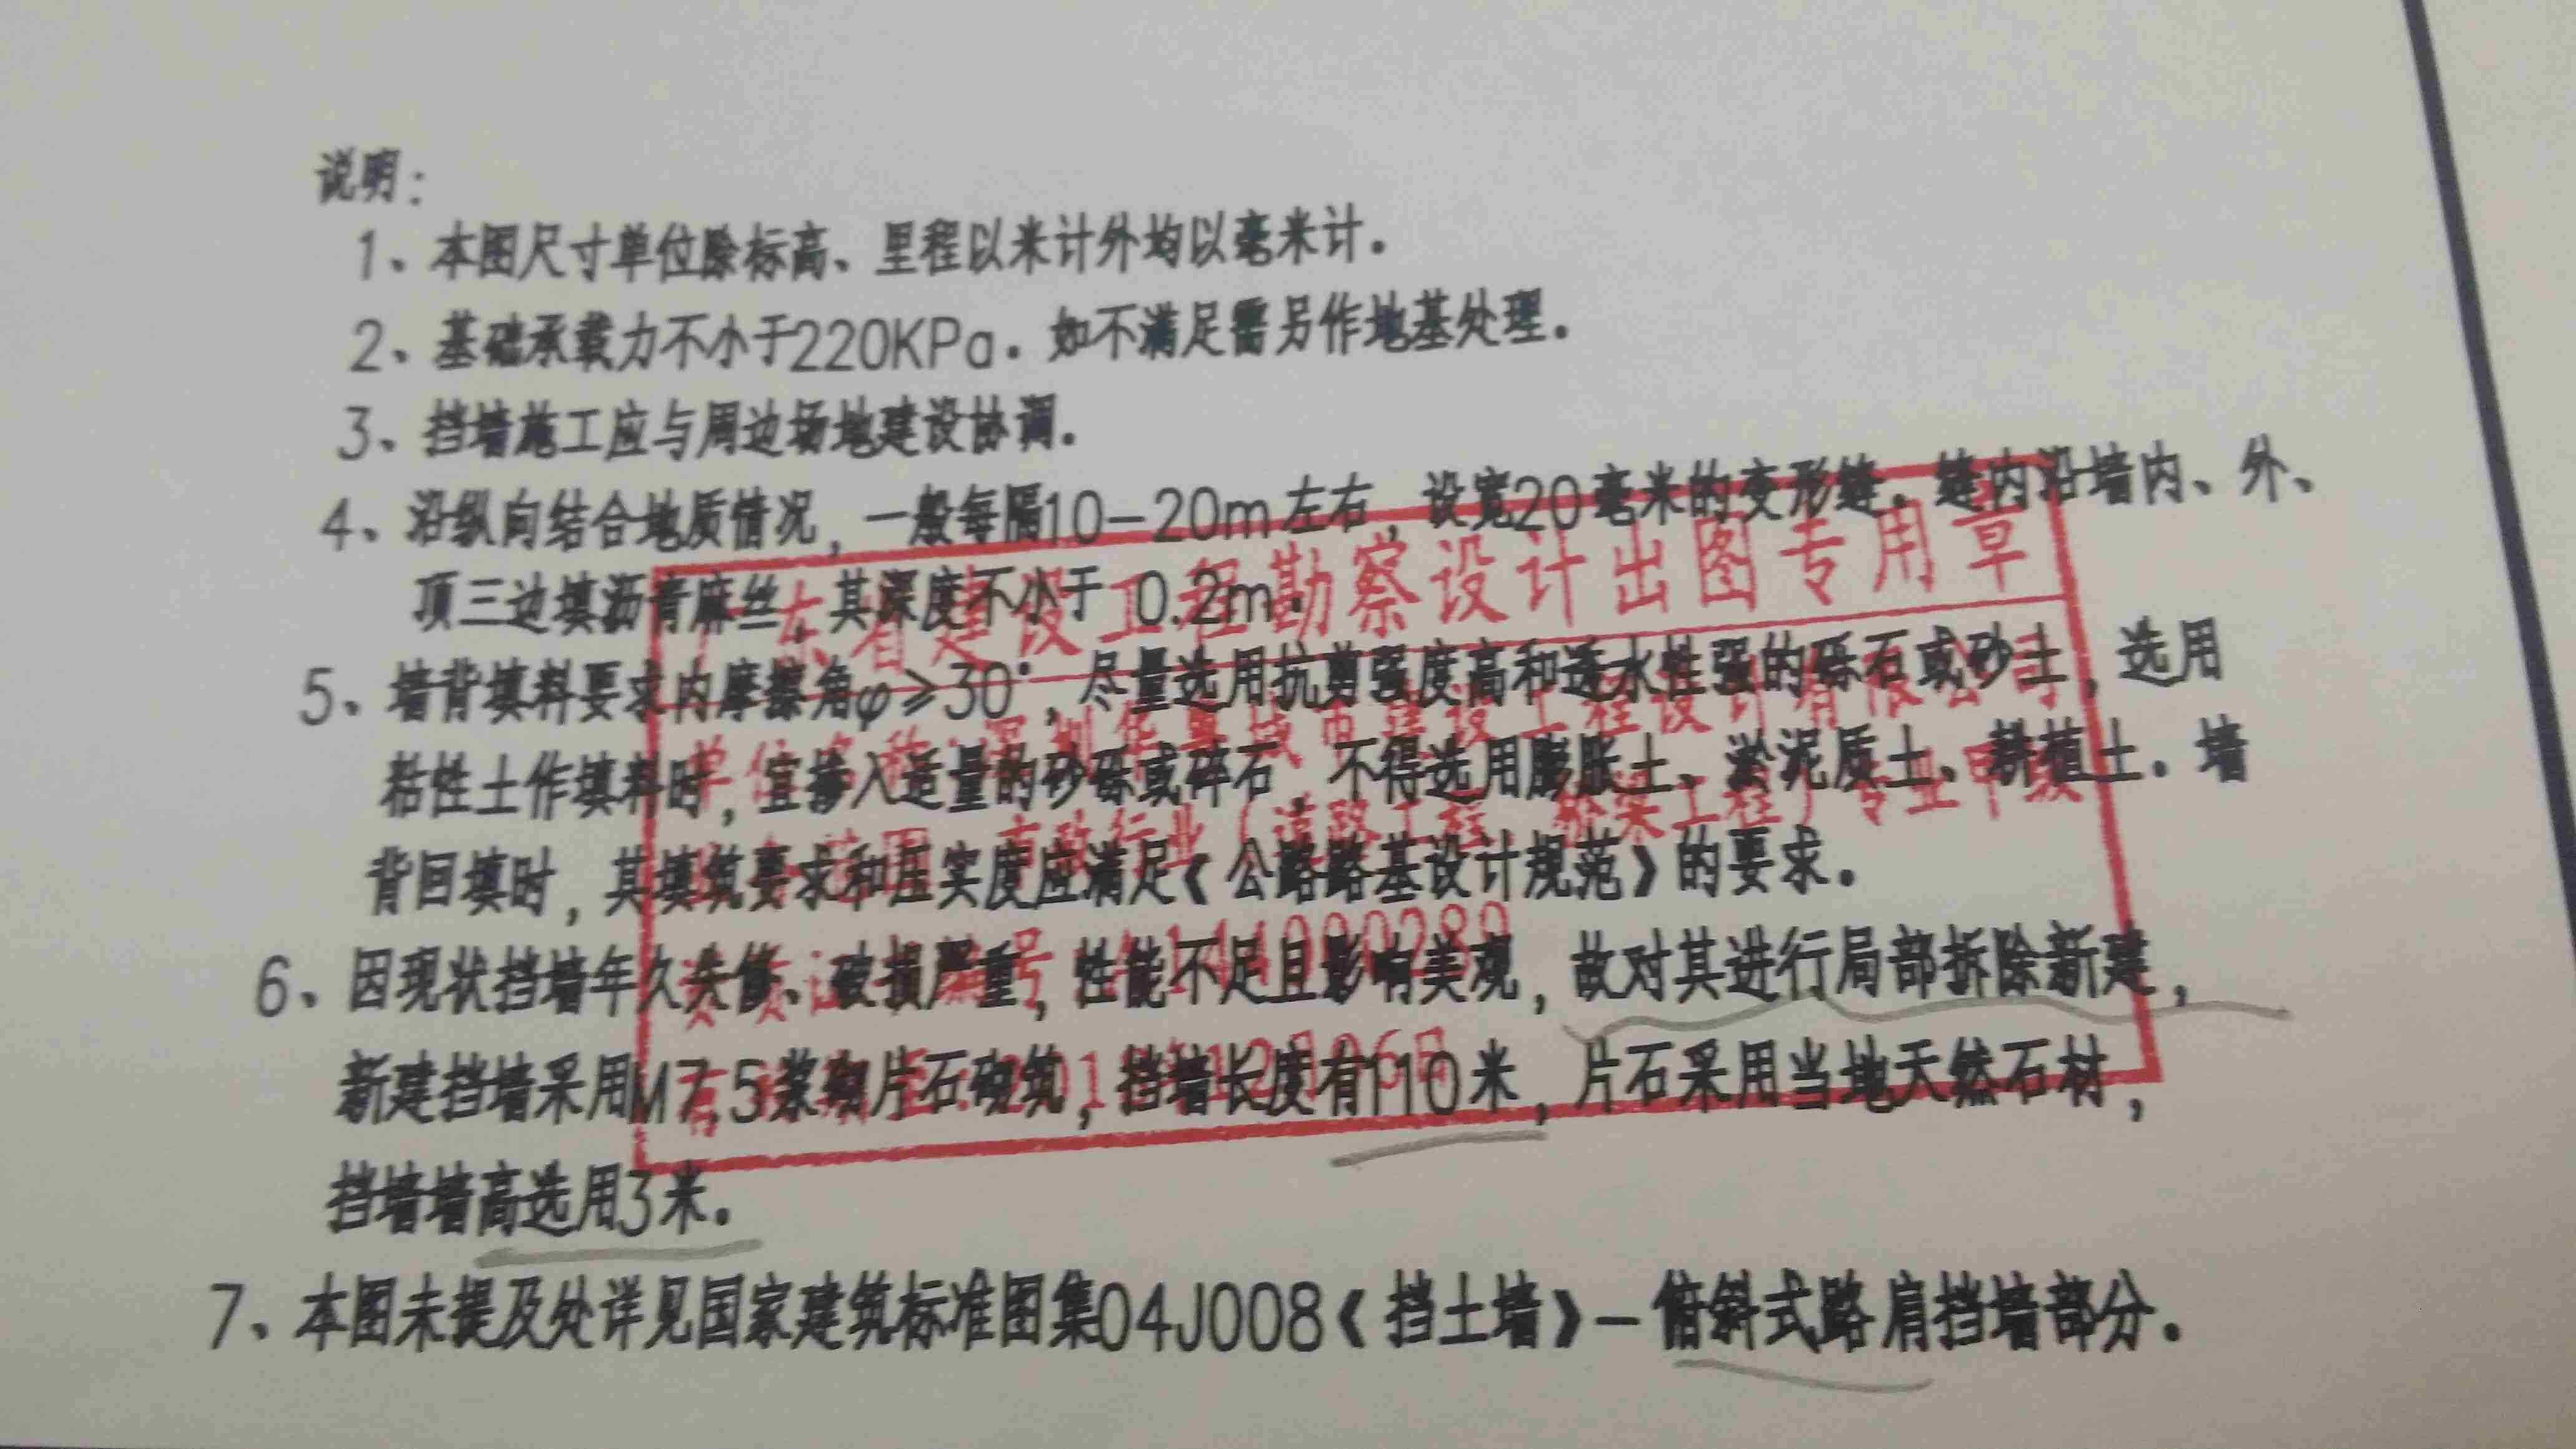 说明：
1、本图尺寸单位除标高、里程以米计外均以毫米计。
2、基础承载力不小于220KPa。如不满足需另作地基处理。
3、挡墙施工应与周边场地建设协调。
4、沿纵向结合地质情况，一般每隔10-20m左右，设宽20毫米的变形缝。缝内沿墙内、外、
顶三边填沥青麻丝，其深度不小于 0.2m。
5、墙背填料要求内摩擦角φ≥30°，尽量选用抗剪强度高和透水性强的砾石或砂土，选用
粘性土作填料时，宜掺入适量的砂砾或碎石，不得选用膨胀土、淤泥质土、耕植土。墙
背回填时，其填筑要求和压实度应满足《公路路基设计规范》的要求。
6、因现状挡墙年久失修、破损严重，性能不足且影响美观，故对其进行局部拆除新建，
新建挡墙采用M7.5浆砌片石砌筑，挡墙长度有110米，片石采用当地天然石材，
挡墙墙高选用3米。
7、本图未提及处详见国家建筑标准图集04J008《挡土墙》-俯斜式路肩挡墙部分。
广东省建设工程勘察设计出图专用章
城市建设工程设计有限公司
市政行业（道路工程、桥梁工程）专业甲级